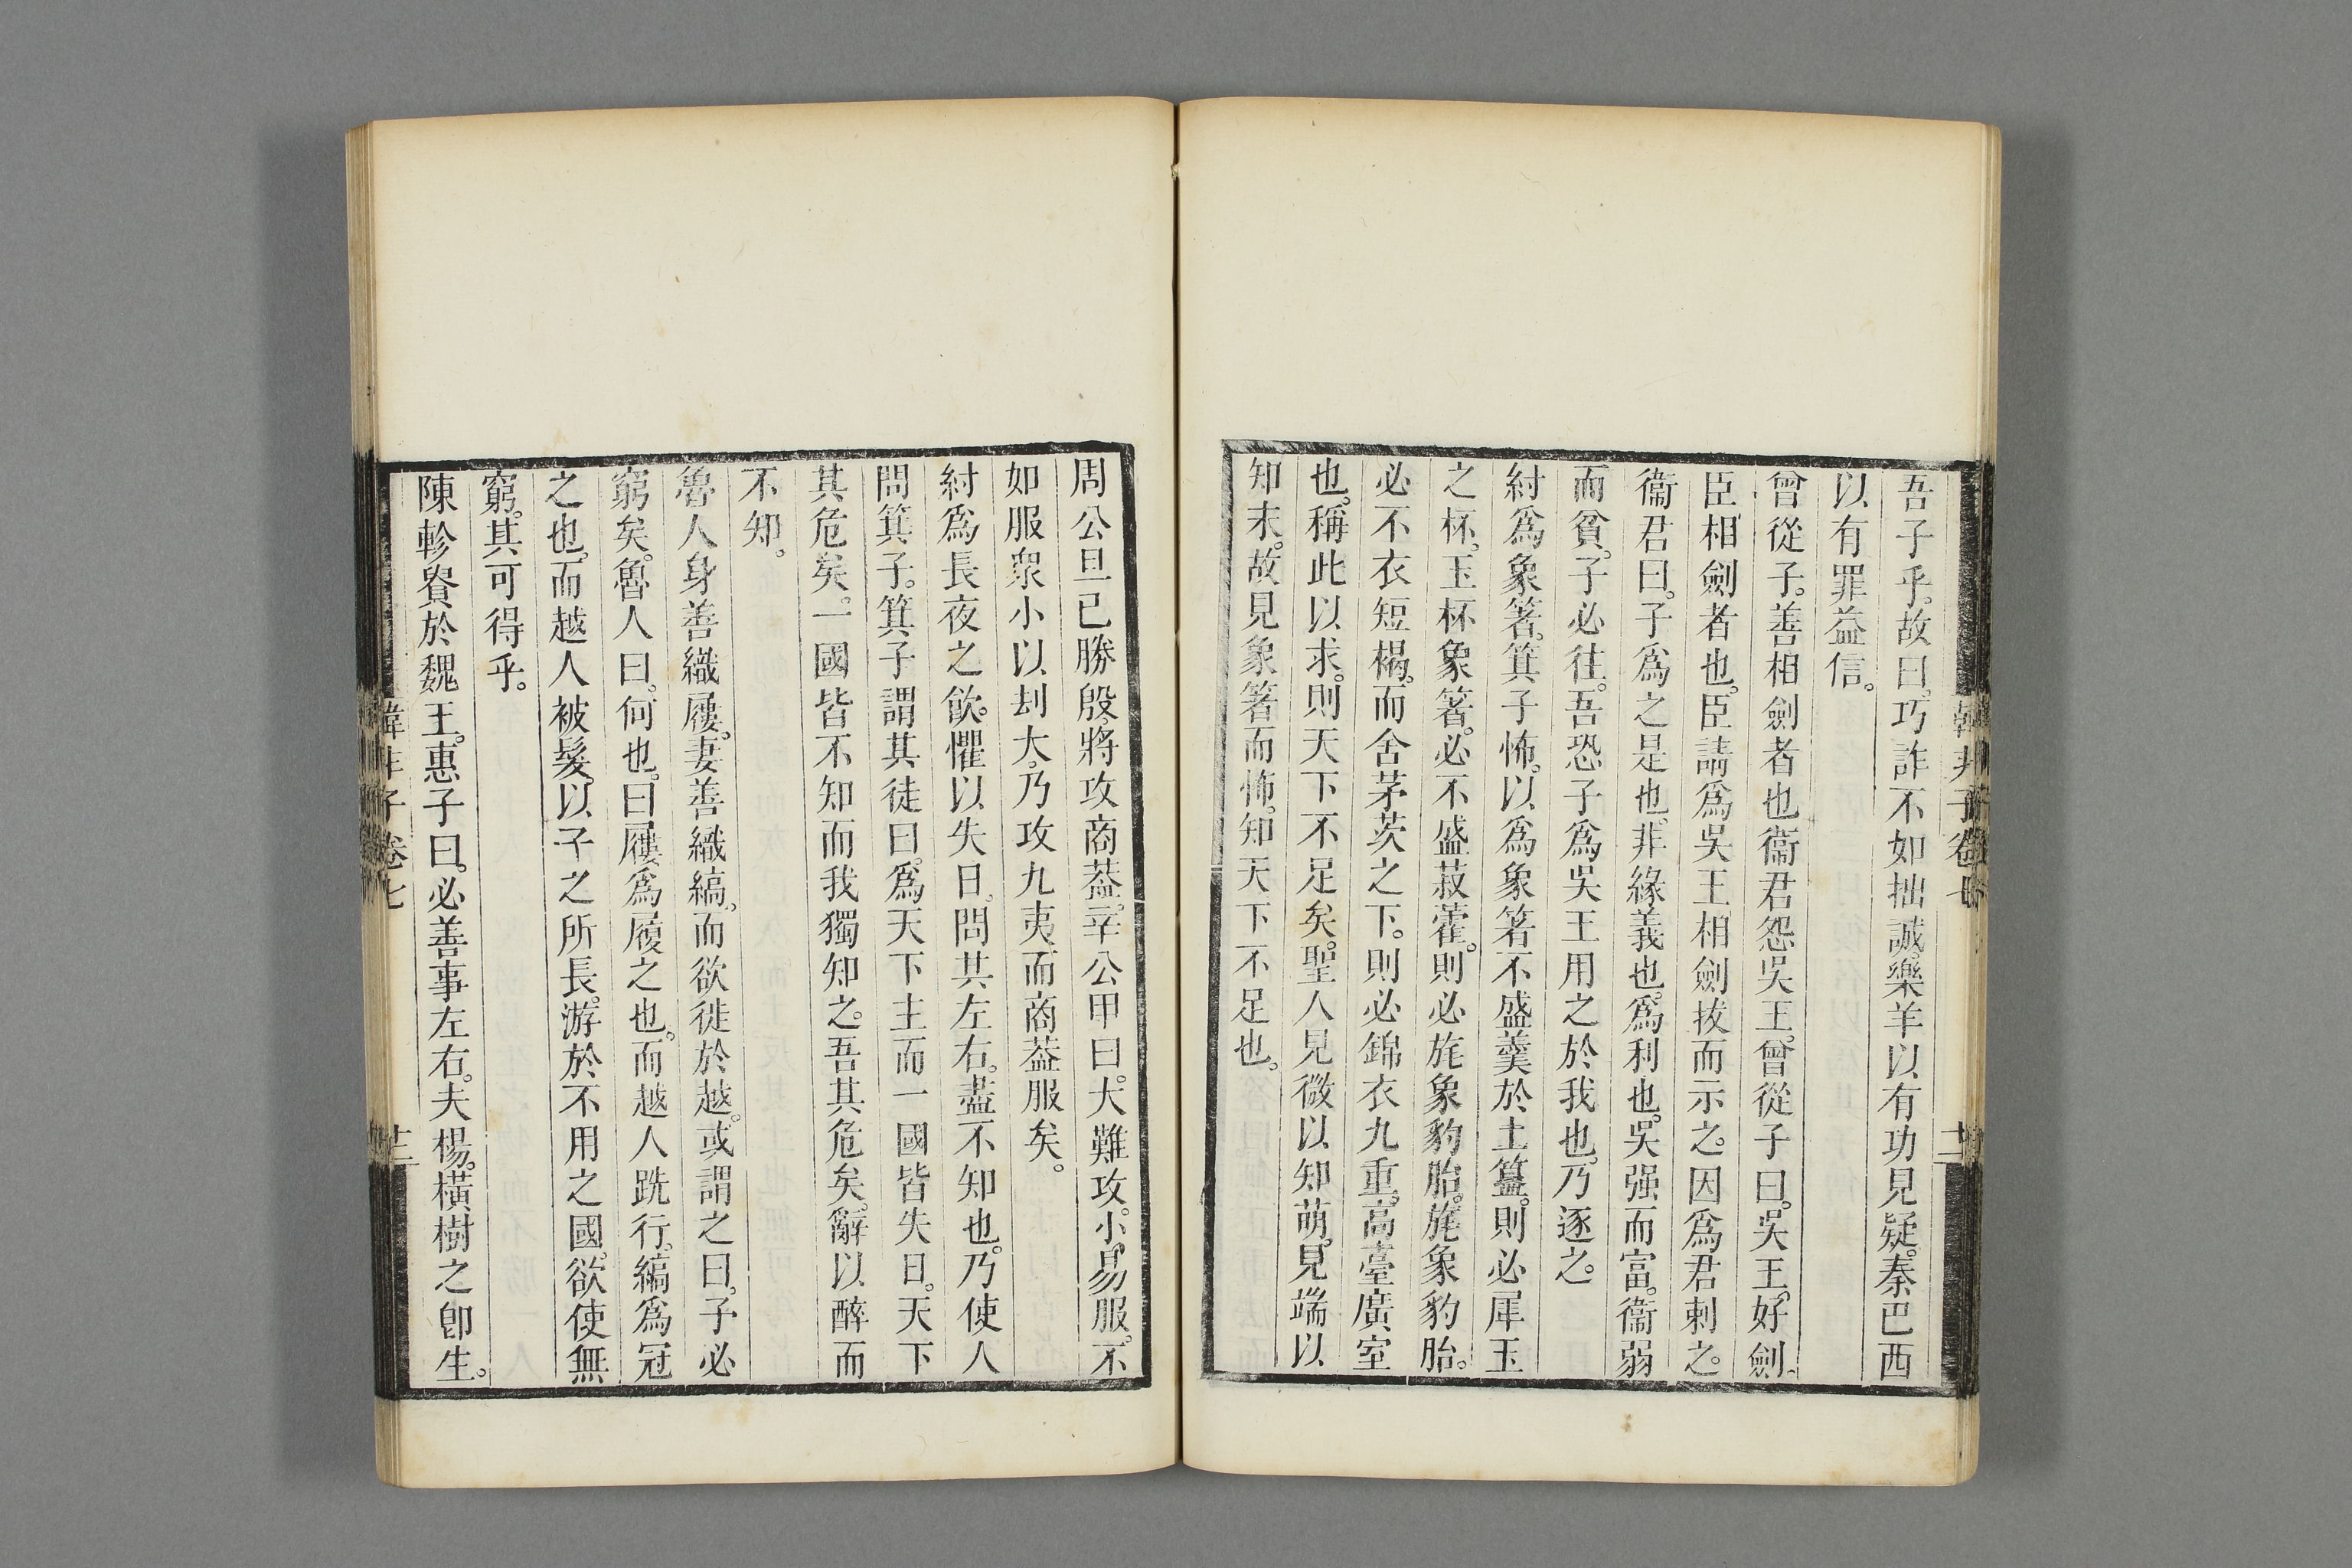 吾子乎。故曰。巧詐不如拙誠。樂羊以有功見疑。秦巴西
以有罪益信。
曾從子。善相劍者也衞君怨吳王。曾從子曰。吳王。好劍。
臣相劍者也。臣請爲吳王相劍拔而示之。因爲君刺之。
衞君曰。子爲之是也。非緣義也。爲利也。吳强而富。衞弱
而貧。子必往。吾恐子爲吳王用之於我也。乃逐之。
紂爲象箸。箕子怖。以爲象箸不盛羹於土簋。則必犀玉
之杯。玉杯象箸。必不盛菽藿。則必旄象豹胎。旄象豹胎。
必不衣短褐。而舍茅茨之下。則必錦衣九重。高臺廣室
也。稱此以求。則天下不足矣。聖人見微以知萌。見端以
知末。故見象箸而怖。知天下不足也。
韓非子卷七
十二
周公旦已勝殷。將攻商葢。辛公甲曰。大難攻。小易服。不
如服衆小以刦大。乃攻九夷而商葢服矣。
紂爲長夜之飮。懼以失日。問其左右。盡不知也。乃使人
問箕子。箕子謂其徒曰。爲天下主而一國皆失日。天下
其危矣。一國皆不知而我獨知之。吾其危矣。辭以醉而
不知。
魯人身善織屨。妻善織縞。而欲徙於越。或謂之曰。子必
窮矣。魯人曰。何也。曰屨爲履之也。而越人跣行。縞爲冠
之也。而越人被髮。以子之所長。游於不用之國。欲使無
窮。其可得乎。
陳軫貴於魏王。惠子曰。必善事左右。夫楊。橫樹之卽生。
韓非子卷七
十三